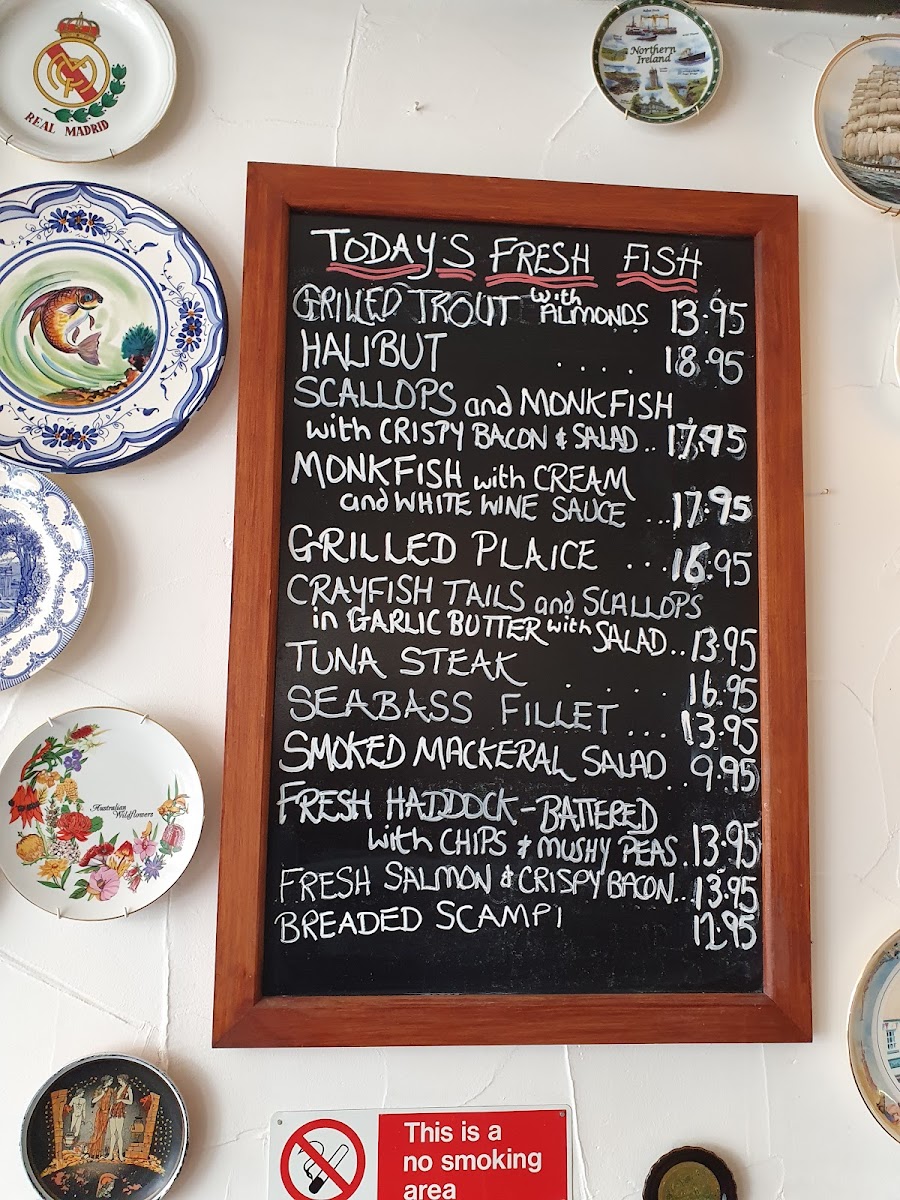 REAL MADRID
Northern
Ireland
TODAY'S FRESH FISH
GRILLED TROUT with ALMONDS 13.95
HALIBUT .... 18.95
SCALLOPS and MONKFISH
with CRISPY BACON & SALAD .. 17.95
MONKFISH with CREAM
and WHITE WINE SAUCE ... 17.95
GRILLED PLAICE ... 16.95
CRAYFISH TAILS and SCALLOPS
in GARLIC BUTTER with SALAD .. 13.95
TUNA STEAK ..... 16.95
SEABASS FILLET ... 13.95
SMOKED MACKERAL SALAD . 9.95
FRESH HADDOCK - BATTERED
with CHIPS & MUSHY PEAS . 13.95
FRESH SALMON & CRISPY BACON ... 13.95
BREADED SCAMPI 12.95
Australian
Wildflowers
This is a
no smoking
area